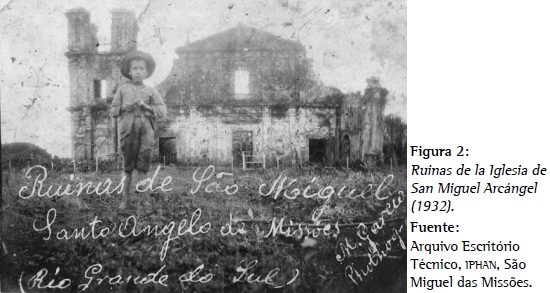 Ruinas de São Miguel
Santo Angelo de Missões
(Rio Grande do Sul)
Figura 2:
Ruinas de la Iglesia de
San Miguel Arcángel
(1932).
Fuente:
Arquivo Escritório
Técnico, IPHAN, São
Miguel das Missões.